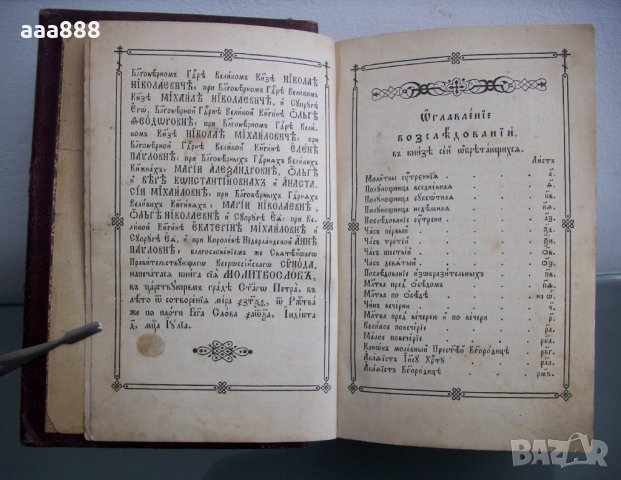 aaa888
Бл҃говѣ́рномъ Гд҃рѣ Вели́комъ Кн҃зѣ НІКОЛАѢ
НІКОЛАЕВИЧѢ; при Бл҃говѣ́рномъ Гд҃рѣ Вели́комъ
Кн҃зѣ МІХАИЛѢ НІКОЛАЕВИЧѢ, и Сꙋпрꙋгѣ
Егѡ̀, Бл҃говѣ́рной Гд҃рнѣ Вели́кой Кн҃ги́нѣ ОЛЬГѢ
ѲЕОДѠРОВНѢ; при Бл҃говѣ́рномъ Гд҃рѣ Вели́-
комъ Кн҃зѣ НІКОЛАѢ МІХАИЛОВИЧѢ; при
Бл҃говѣ́рной Гд҃рнѣ Вели́кой Кн҃ги́нѣ ЕЛЕНѢ
ПАѴЛОВНѢ; при Бл҃говѣ́рныхъ Гд҃рняхъ Вели́кихъ
Кн҃жна́хъ: МАРІИ АЛЕЗАНДРОВНѢ, ОЛЬГѢ
и ВѢРѢ КѠНСТАНТІНОВНАХЪ и АНАСТА-
СІИ МІХАИЛОВНѢ; при Бл҃говѣ́рныхъ Гд҃рняхъ
Вели́кихъ Кн҃ги́няхъ: МАРІИ НІКОЛАЕВНѢ,
ОЛЬГѢ НІКОЛАЕВНѢ и Сꙋпрꙋгѣ Еѧ̀; при Ве-
ли́кой Кн҃ги́нѣ ЕКАТЕРІНѢ МІХАИЛОВНѢ и
Сꙋпрꙋгѣ Еѧ̀, и при Короле́вѣ Нідерла́ндской АННѢ
ПАѴЛОВНѢ, благослове́ніемъ же Свѧтѣ́йшагѡ
Прави́тельствꙋющагѡ Всероссі́йскагѡ СѴНОДА,
напеча́тасѧ кни́га сїѧ̀ МОЛИТВОСЛОВЪ,
въ ца́рствꙋющемъ гра́дѣ Ст҃а́гѡ Петра̀, въ
лѣ́то ѿ сотворе́нія мі́ра ѿ Рж҇тва̀
же по пло́ти Бг҃а Сло́ва Інді́кта
мц҇а Іꙋ́лїа.
Ѡ҆главле́нїе
возслѣ́дованїй,
въ кни́зѣ се́й ѡ҆брѣта́ющихсѧ.
Ли́стъ
Моли́твы ᲂу҆́треннїѧ . . . . а҃.
Полꙋ́нощница вседне́внаѧ . . .
Полꙋ́нощница сꙋббѡ́тнаѧ . . .
Полꙋ́нощница недѣ́льнаѧ . . .
Послѣ́дованїе ᲂу҆́трени . . . л҃з.
Ча́съ пе́рвый . . . .
Ча́съ тре́тїй . . . .
Ча́съ шесты́й . . . .
Ча́съ девѧ́тый . . . .
Послѣ́дованїе и҆зѡбрази́тельныхъ . .
Мл҃тва пред̾ ѻ҆бѣ́домъ . . .
Мл҃тва по ѻ҆бѣ́дѣ . . . на ѡ
Чи́нъ вече́рни . . . .
Мл҃тва пред̾ вече́рею и҆ по вече́ри . . р҃.
Вели́кое повече́рїе . . . .
Ма́лое повече́рїе . . . .
Канѡ́нъ моле́бный Прест҃ѣ́й Бг҃оро́дицѣ .
А҆ка́ѳїстъ І҆и҃сꙋ Хрⷭ҇тꙋ̀ . . .
А҆ка́ѳїстъ Бг҃оро́дицѣ . . .
BAZAR
.bg